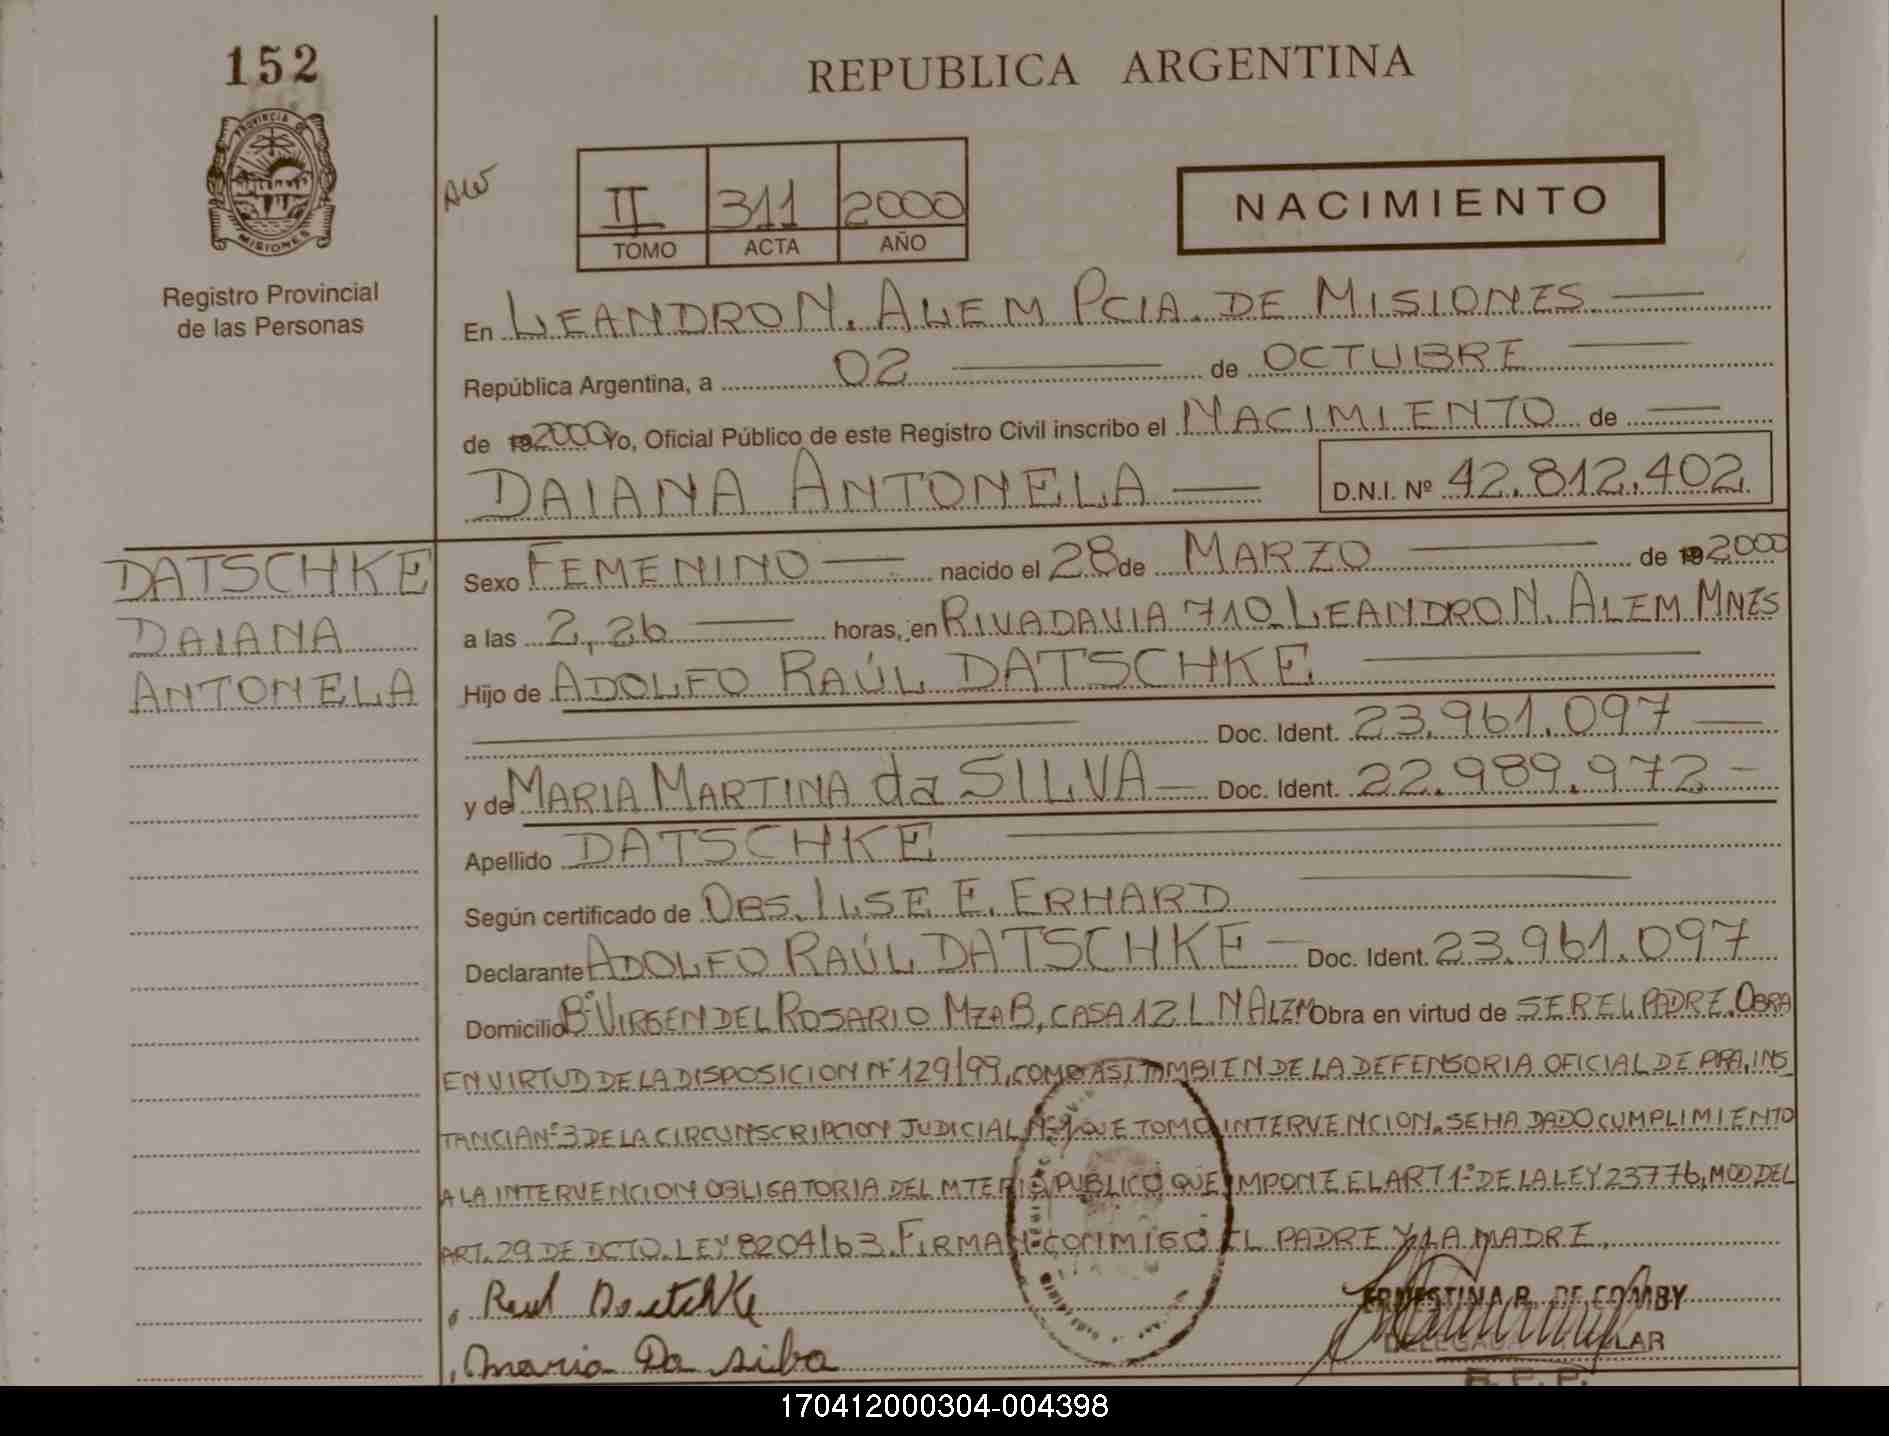 152
REPUBLICA ARGENTINA
PROVINCIA DE
MISIONES
Registro Provincial
de las Personas
II 311 2000
TOMO ACTA AÑO
NACIMIENTO
En LEANDRO N. ALEM PCIA. DE MISIONES
República Argentina, a 02 de OCTUBRE
de 192000 Yo, Oficial Público de este Registro Civil inscribo el NACIMIENTO de
DAIANA ANTONELA D.N.I. Nº 42.812.402
DATSCHKE
DAIANA
ANTONELA
Sexo FEMENINO nacido el 28 de MARZO de 192000
a las 2,26 horas, en RIVADAVIA 710 LEANDRO N. ALEM MNES
Hijo de ADOLFO RAÚL DATSCHKE
Doc. Ident. 23.961.097
y de MARIA MARTINA da SILVA Doc. Ident. 22.989.972
Apellido DATSCHKE
Según certificado de OBS. ILSE E. ERHARD
Declarante ADOLFO RAÚL DATSCHKE Doc. Ident. 23.961.097
Domicilio Bº VIRGEN DEL ROSARIO MZA B, CASA 12 L N ALEM Obra en virtud de SER EL PADRE. OBRA
EN VIRTUD DE LA DISPOSICION Nº 129/99, COMO ASI TAMBIEN DE LA DEFENSORIA OFICIAL DE PRA, INS
TANCIA Nº 3 DE LA CIRCUNSCRIPCION JUDICIAL QUE TOMO INTERVENCION. SE HA DADO CUMPLIMIENTO
A LA INTERVENCION OBLIGATORIA DEL MTERIO PUBLICO QUE IMPONE EL ART 1º DE LA LEY 23776, MOD DEL
ART. 29 DE DCTO. LEY 8204/63. FIRMAN CONMIGO EL PADRE Y LA MADRE.
Raul Datchke
Maria Da silva
ERNESTINA R. DE COMBY
R.P.P.
170412000304-004398